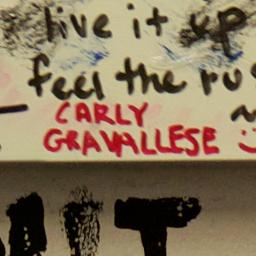 live it up
feel the rus
CARLY
GRAVALLESE